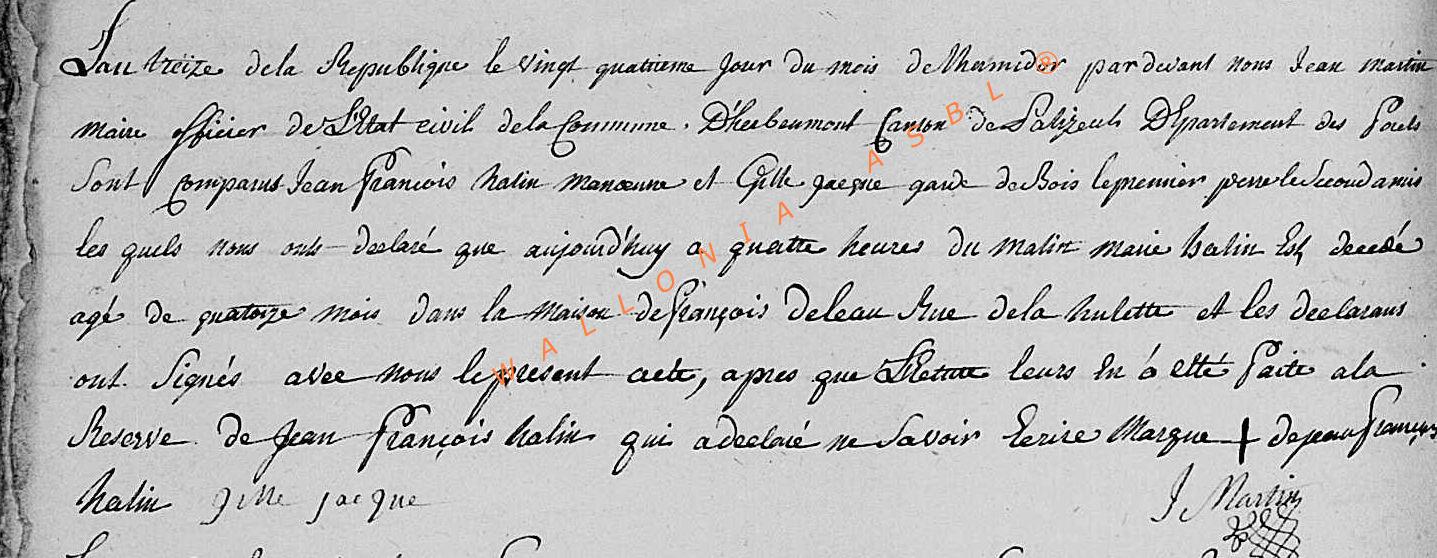 L'an treize dela Republique le vingt quatrieme Jour du mois de thermidor pardevant nous Jean martin
maire officier de L'Etat civil dela Commune D'herbeumont Canton de Palizeul Département des forets
Sont Comparus Jean François halin manœuvre et Gille jacque garde de Bois le premier perre le Second amis
les quels nous onts declaré que aujourd'huy a quattre heures du matin marie halin Est decedé
agé de quatorze mois dans la Maison de François Deleau Rue dela hulette et les declarans
ont Signés avec nous le present acte, apres que Lecture leurs En á etté faite ala
Reserve de Jean François halin qui a declaré ne Savoir Ecrire Marque + de jean François
halin gille jacque J Martin
WALLONIA ASBL ®